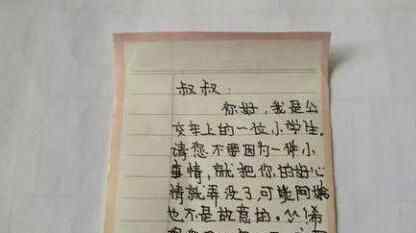 叔叔：
你好，我是公
交车上的一位小学生，
请您不要因为一件小
事情，就把你的好心
情就弄没了，可能阿姨
也不是故意的，